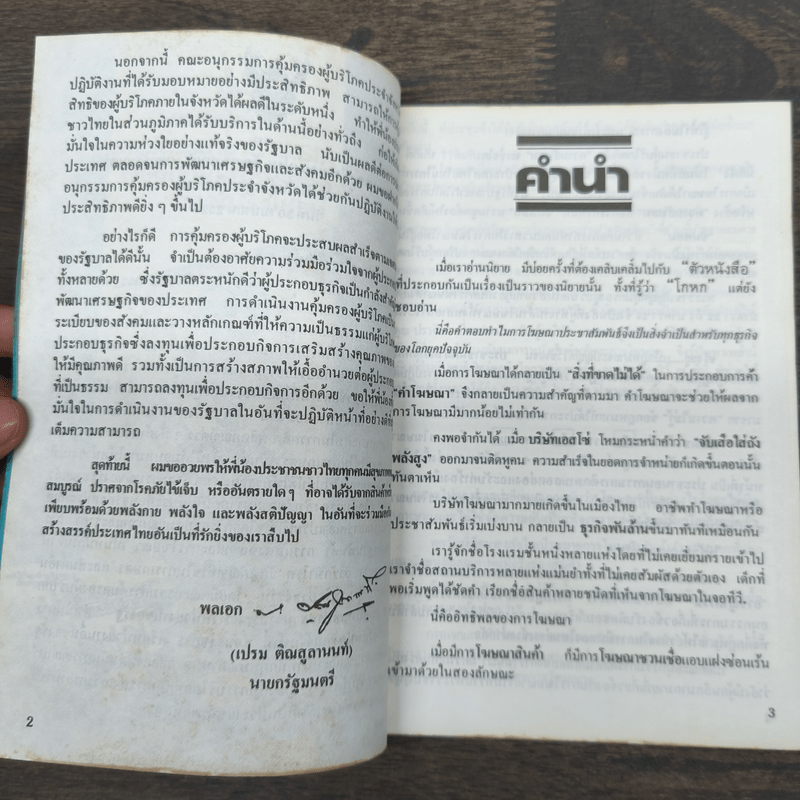 นอกจากนี้ คณะอนุกรรมการคุ้มครองผู้บริโภคประจำจังหวัด
ปฏิบัติงานที่ได้รับมอบหมายอย่างมีประสิทธิภาพ สามารถให้การ
สิทธิของผู้บริโภคภายในจังหวัดได้ผลดีในระดับหนึ่ง ทำให้พี่น้อง
ชาวไทยในส่วนภูมิภาคได้รับบริการในด้านนี้อย่างทั่วถึง ก่อให้
มั่นใจในความห่วงใยอย่างแท้จริงของรัฐบาล นับเป็นผลดีต่อการ
ประเทศ ตลอดจนการพัฒนาเศรษฐกิจและสังคมอีกด้วย ผมขอ
อนุกรรมการคุ้มครองผู้บริโภคประจำจังหวัดได้ช่วยกันปฏิบัติงาน
ประสิทธิภาพดียิ่ง ๆ ขึ้นไป
อย่างไรก็ดี การคุ้มครองผู้บริโภคจะประสบผลสำเร็จตาม
ของรัฐบาลได้ดีนั้น จำเป็นต้องอาศัยความร่วมมือร่วมใจจากผู้ประกอบ
ทั้งหลายด้วย ซึ่งรัฐบาลตระหนักดีว่าผู้ประกอบธุรกิจเป็นกำลังสำคัญ
พัฒนาเศรษฐกิจของประเทศ การดำเนินงานคุ้มครองผู้บริโภคเป็น
ระเบียบของสังคมและวางหลักเกณฑ์ที่ให้ความเป็นธรรมแก่ผู้บริโภค
ประกอบธุรกิจซึ่งลงทุนเพื่อประกอบกิจการเสริมสร้างคุณภาพของ
ให้มีคุณภาพดี รวมทั้งเป็นการสร้างสภาพให้เอื้ออำนวยต่อผู้ประกอบ
ที่เป็นธรรม สามารถลงทุนเพื่อประกอบกิจการอีกด้วย ขอให้พี่น้อง
มั่นใจในการดำเนินงานของรัฐบาลในอันที่จะปฏิบัติหน้าที่อย่างดีที่
เต็มความสามารถ
สุดท้ายนี้ ผมขออวยพรให้พี่น้องประชาชนชาวไทยทุกคนมีสุขภาพ
สมบูรณ์ ปราศจากโรคภัยไข้เจ็บ หรืออันตรายใด ๆ ที่อาจได้รับจากสินค้า
เพียบพร้อมด้วยพลังกาย พลังใจ และพลังสติปัญญา ในอันที่จะร่วมมือกัน
สร้างสรรค์ประเทศไทยอันเป็นที่รักยิ่งของเราสืบไป
พลเอก
(เปรม ติณสูลานนท์)
นายกรัฐมนตรี
2
คำนำ
เมื่อเราอ่านนิยาย มีบ่อยครั้งที่ต้องเคลิบเคลิ้มไปกับ “ตัวหนังสือ”
ที่ประกอบกันเป็นเรื่องเป็นราวของนิยายนั้น ทั้งที่รู้ว่า “โกหก” แต่ยัง
ชอบอ่าน
นี่คือคำตอบทำไมการโฆษณาประชาสัมพันธ์จึงเป็นสิ่งจำเป็นสำหรับทุกธุรกิจ
ของโลกยุคปัจจุบัน
เมื่อการโฆษณาได้กลายเป็น “สิ่งที่ขาดไม่ได้” ในการประกอบการค้า
“คำโฆษณา” จึงกลายเป็นความสำคัญที่ตามมา คำโฆษณาจะช่วยให้ผลจาก
การโฆษณามีมากน้อยไม่เท่ากัน
คงพอจำกันได้ เมื่อ บริษัทเอสโซ่ โหมกระหน่ำคำว่า “จับเสือใส่ถัง
พลังสูง” ออกมาจนติดหูคน ความสำเร็จในยอดการจำหน่ายก็เกิดขึ้นตอนนั้น
ทันตาเห็น
บริษัทโฆษณามากมายเกิดขึ้นในเมืองไทย อาชีพทำโฆษณาหรือ
ประชาสัมพันธ์เริ่มเบ่งบาน กลายเป็น ธุรกิจพันล้านขึ้นมาทันทีเหมือนกัน
เรารู้จักชื่อโรงแรมชั้นหนึ่งหลายแห่งโดยที่ไม่เคยเยี่ยมกรายเข้าไป
เราจำชื่อสถานบริการหลายแห่งแม่นยำทั้งที่ไม่เคยสัมผัสด้วยตัวเอง เด็กที่
พอเริ่มพูดได้ชัดคำ เรียกชื่อสินค้าหลายชนิดที่เห็นจากโฆษณาในจอทีวี.
นี่คืออิทธิพลของการโฆษณา
เมื่อมีการโฆษณาสินค้า ก็มีการโฆษณาชวนเชื่อแอบแฝงซ่อนเร้น
เข้ามาด้วยในสองลักษณะ
3